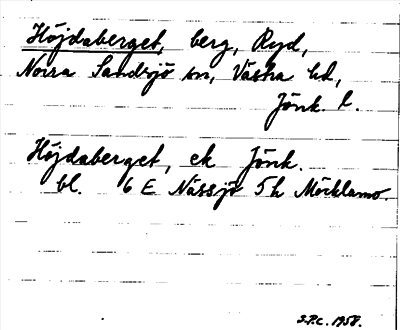 Höjdaberget, berg, Ryd,
Norra Sandsjö sn, Västra hd,
Jönk. l.
Höjdaberget, ek Jönk.
bl. 6 E Nässjö 5 h Möcklamo.
S.P.C. 1958.